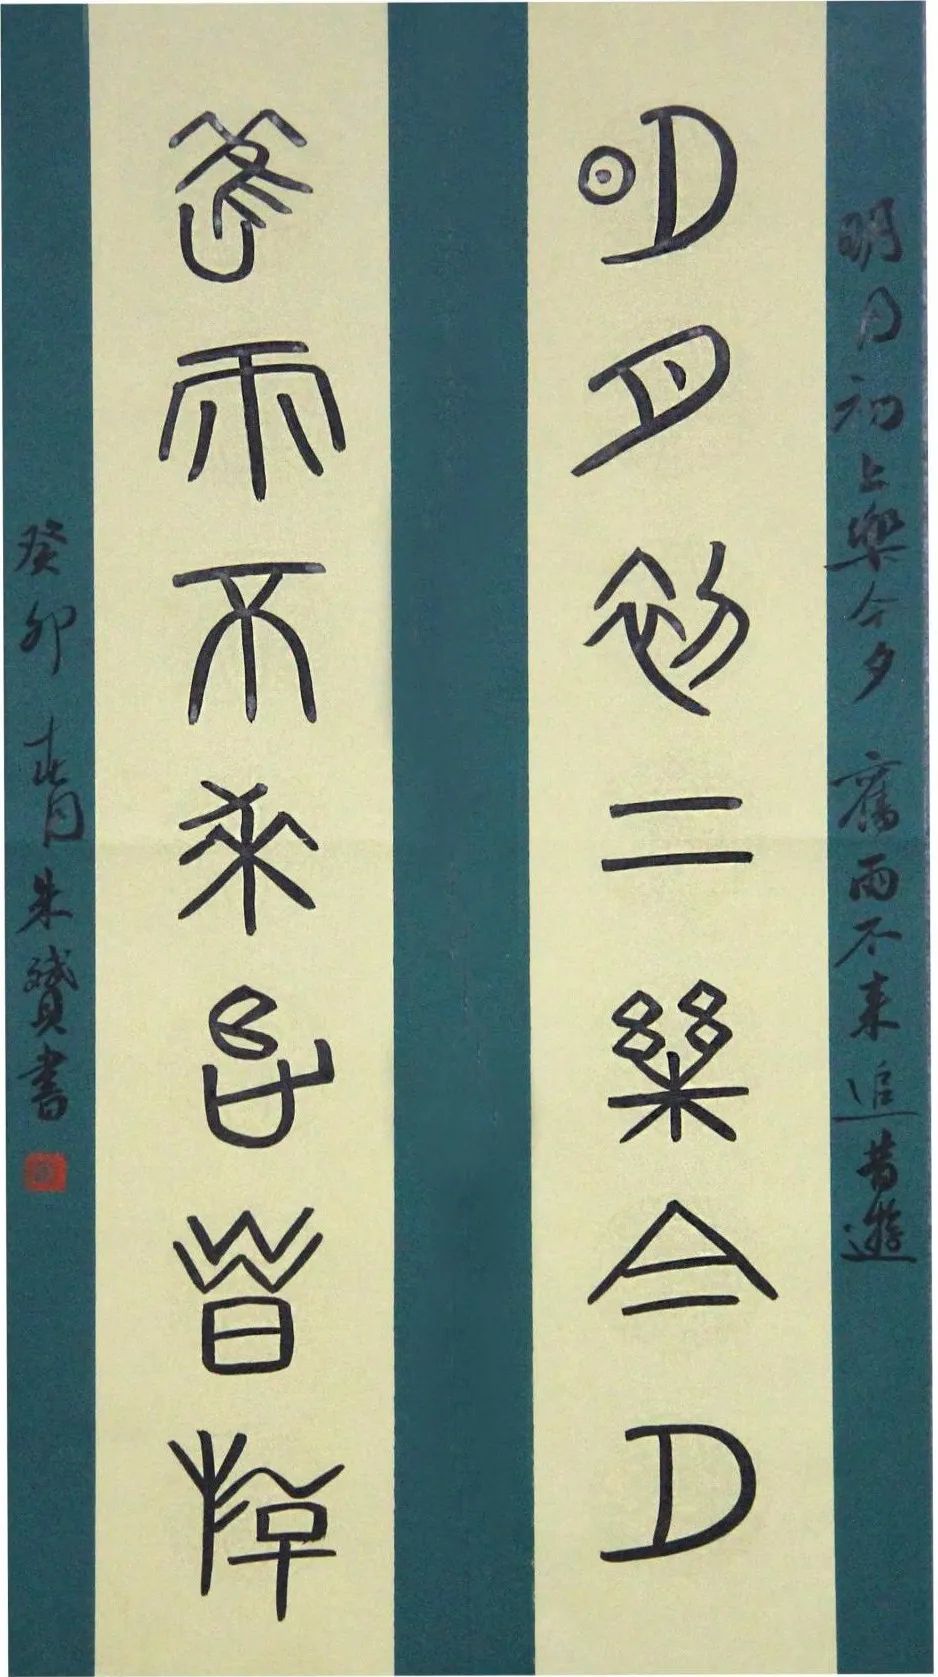 明月初上樂今夕 舊雨不来追昔遊
明月初二樂今夕
舊雨不來追昔游
癸卯春月朱贇書